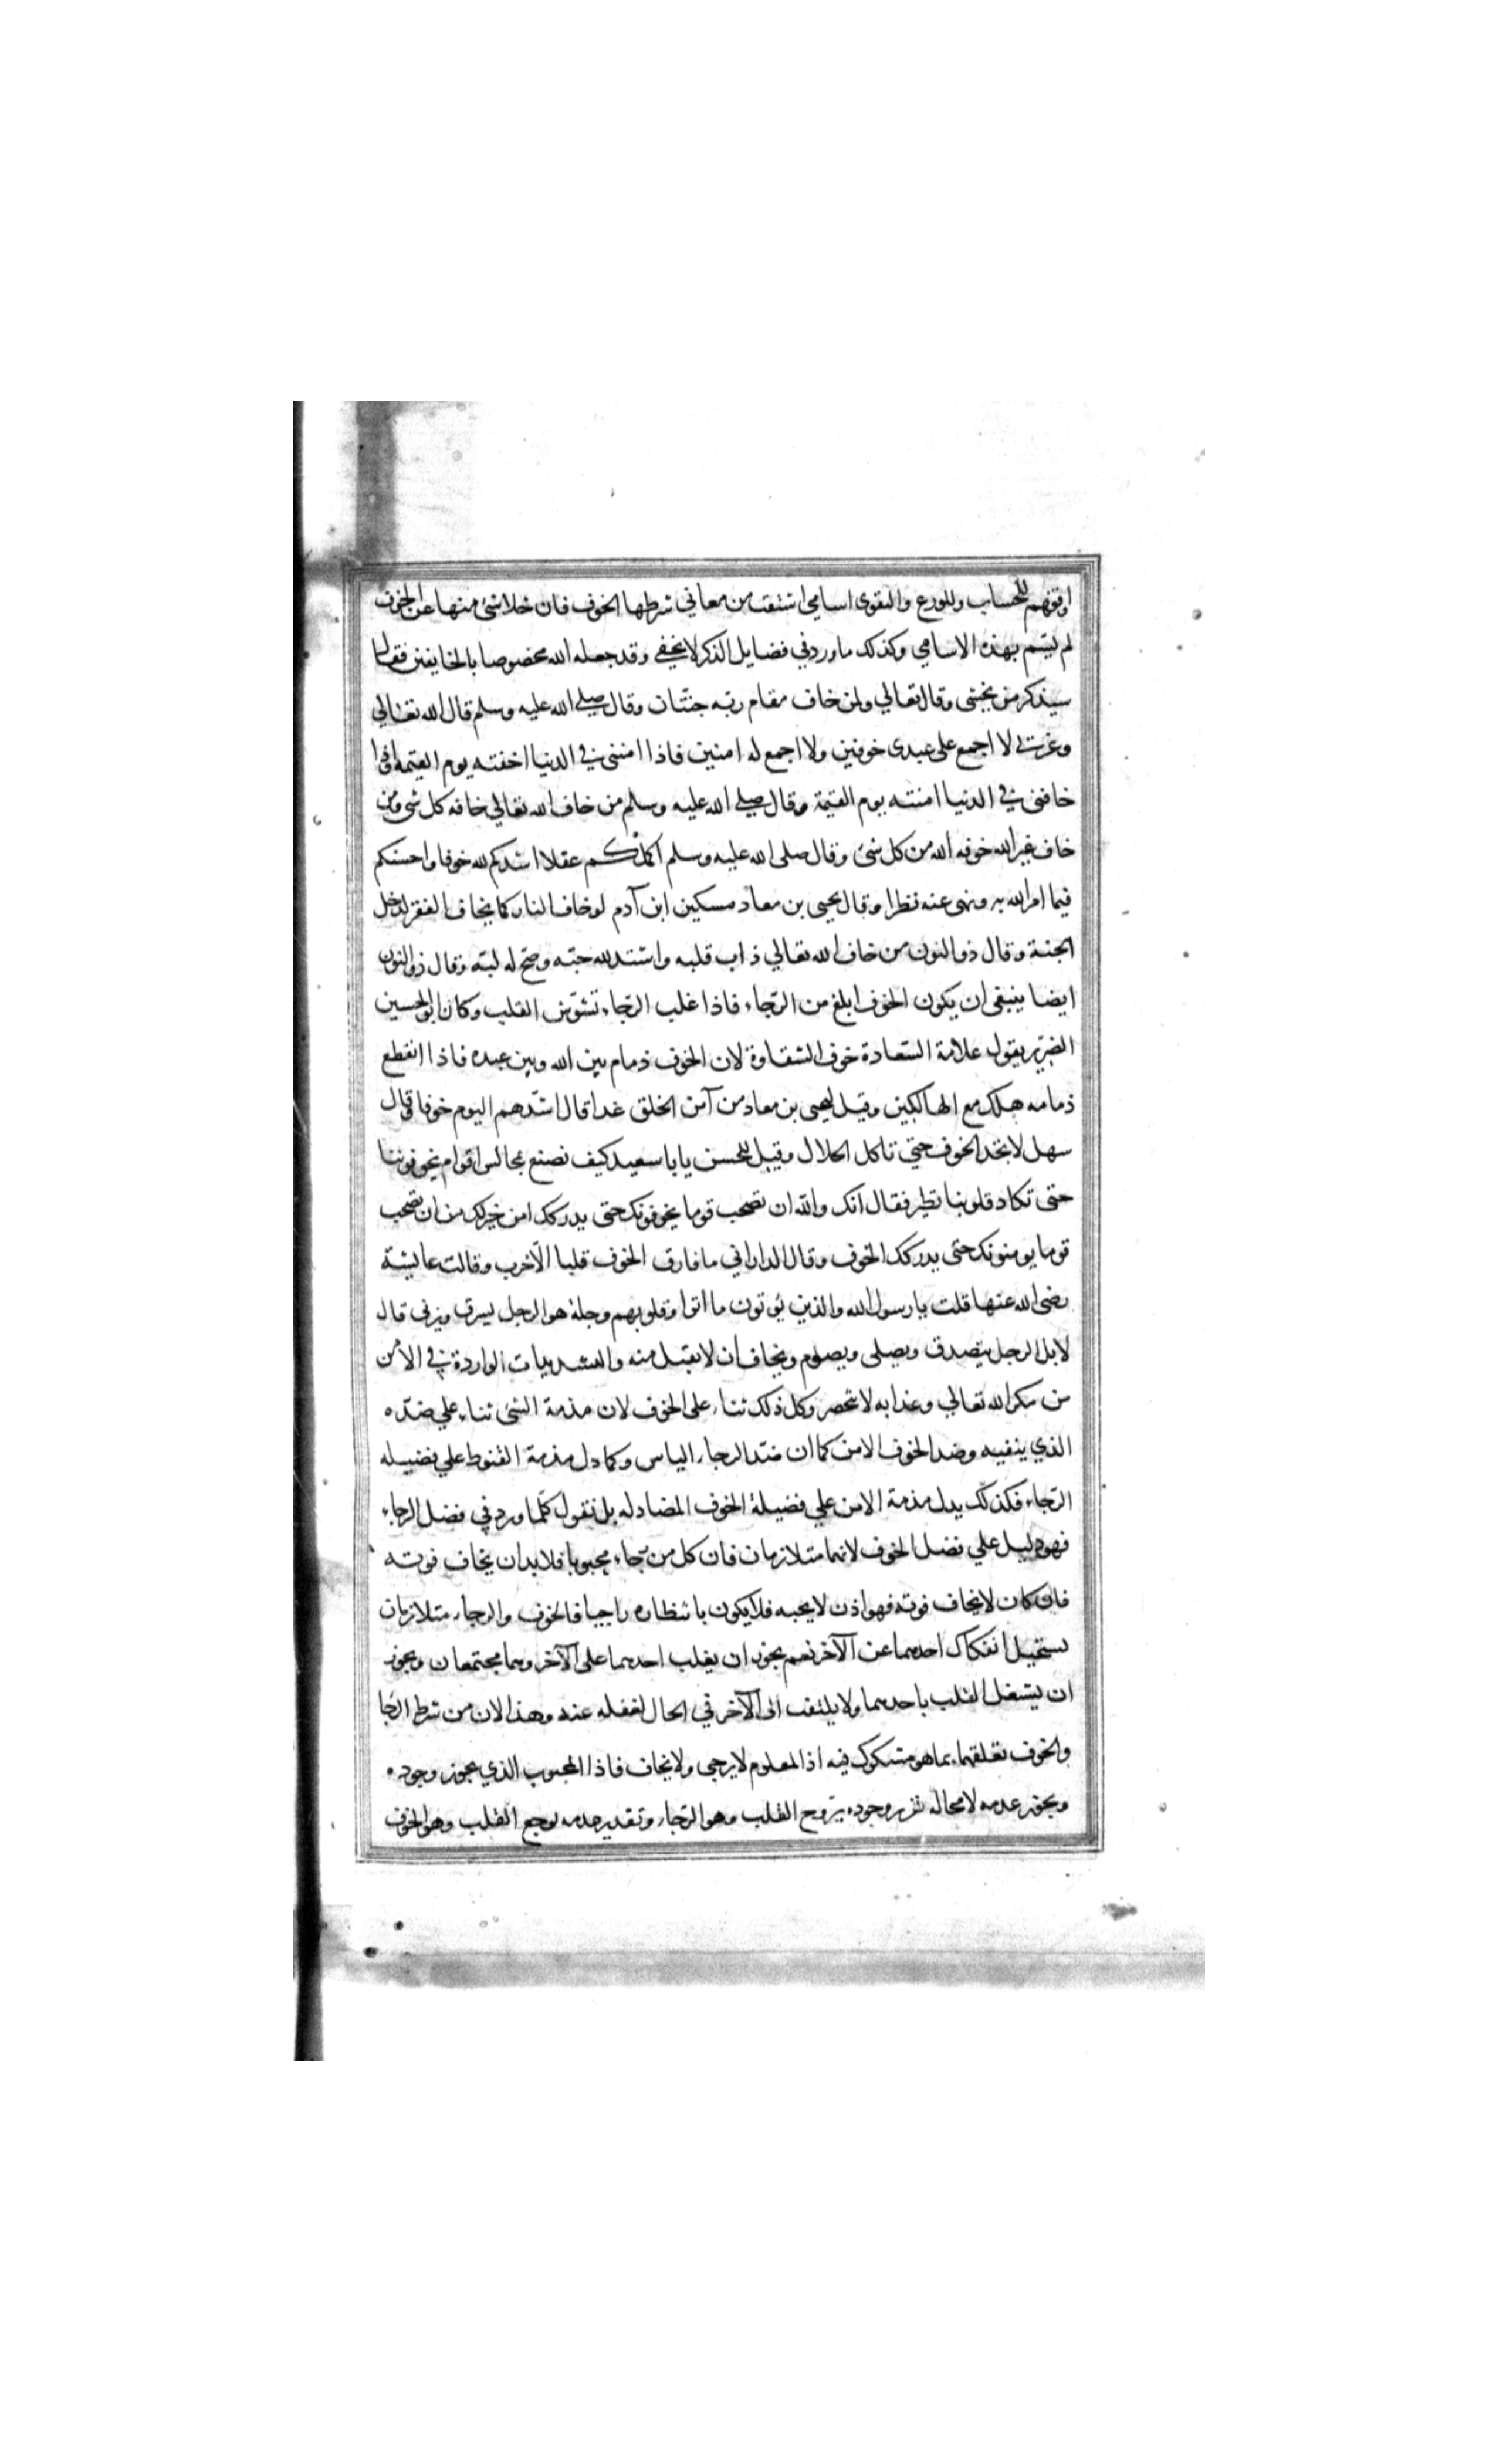 اوقفهم للحساب وللورع والتقوى اسامي اشتقت من معاني شرطها الخوف فان خلا شئ منها عن الخوف
لم يتسم بهذه الاسامي وكذلك ما ورد في فضايل الذكر لا يخفى وقد جعله الله مخصوصا بالخايفين فقال
سيذكر من يخشى وقال تعالي ولمن خاف مقام ربه جنتان وقال صلى الله عليه وسلم قال الله تعالي
وعزتي لا اجمع على عبدى خوفين ولا اجمع له امنين فاذا امنني في الدنيا اخفته يوم القيمة واذا
خافني في الدنيا امنته يوم القيمة وقال صلى الله عليه وسلم من خاف الله تعالي خافه كل شى ومن
خاف غير الله خوفه الله من كل شئ وقال صلى الله عليه وسلم اكملكم عقلا اشدكم لله خوفا واحسنكم
فيما امر الله به ونهى عنه نظرا وقال يحيى بن معاد مسكين ابن آدم لو خاف النار كما يخاف الفقر لدخل
الجنة وقال ذو النون من خاف الله تعالي ذاب قلبه واشتد لله حبّه وصح له لبّه وقال ذو النون
ايضا ينبغى ان يكون الخوف ابلغ من الرّجاء فاذا غلب الرّجاء تشوّش القلب وكان ابو الحسين
الضرير يقول علامة السّعادة خوف الشقاوة لان الخوف ذمام بين الله وبين عبده فاذا انقطع
ذمامه هلك مع الهالكين وقيل ليحيى بن معاد من آمن الخلق غدا قال اشدّهم اليوم خوفا وقال
سهل لا تجد الخوف حتي تاكل الحلال وقيل للحسن يابا سعيد كيف نصنع مجالس اقوام يخوفوننا
حتى تكاد قلوبنا تطير فقال انك والله ان تصحب قوما يخوفونك حتى يدركك امن خير لك من ان تصحب
قوما يومنونك حتى يدركك الخوف وقال الداراني ما فارق الخوف قلبا الّا خرب وقالت عايشة
رضى الله عنها قلت يا رسول الله والذين يؤتون ما اتوا وقلوبهم وجلة هو الرجل يسرق ويزنى قال
لا بل الرجل يتصدق ويصلى ويصوم ويخاف ان لا يقبل منه والتشديدات الواردة في الأمن
من مكر الله تعالي وعذابه لا تنحصر وكل ذلك ثناء على الخوف لان مذمة الشئ ثناء علي ضدّه
الذي ينفيه وضد الخوف الامن كما ان ضدّ الرجاء الياس وكما دل مذمة القنوط علي فضيله
الرّجاء فكذلك يدل مذمة الامن علي فضيلة الخوف المضاد له بل نقول كلّما ورد في فضل الرجاء
فهو دليل علي فضل الخوف لانهما متلازمان فان كل من رجاء محبوبا فلا بد ان يخاف فوته
فان كان لا يخاف فوته فهو اذن لا يحبه فلا يكون بانتظاره راجيا فالخوف والرجاء متلازمان
يستحيل انفكاك احدهما عن الآخر نعم يجوز ان يغلب احدهما على الآخر وهما مجتمعان ويجوز
ان يشتغل القلب باحدهما ولا يلتفت الى الآخر في الحال لغفله عنه وهذا لان من شرط الرّجا
والخوف تعلقهما بما هو مشكوك فيه اذ المعلوم لا يرجى ولا يخاف فاذا المحبوب الذي يجوز وجوده
ويجوز عدمه لا محاله وجوده يروح القلب وهو الرّجاء وتقدير عدمه يوجع القلب وهو الخوف